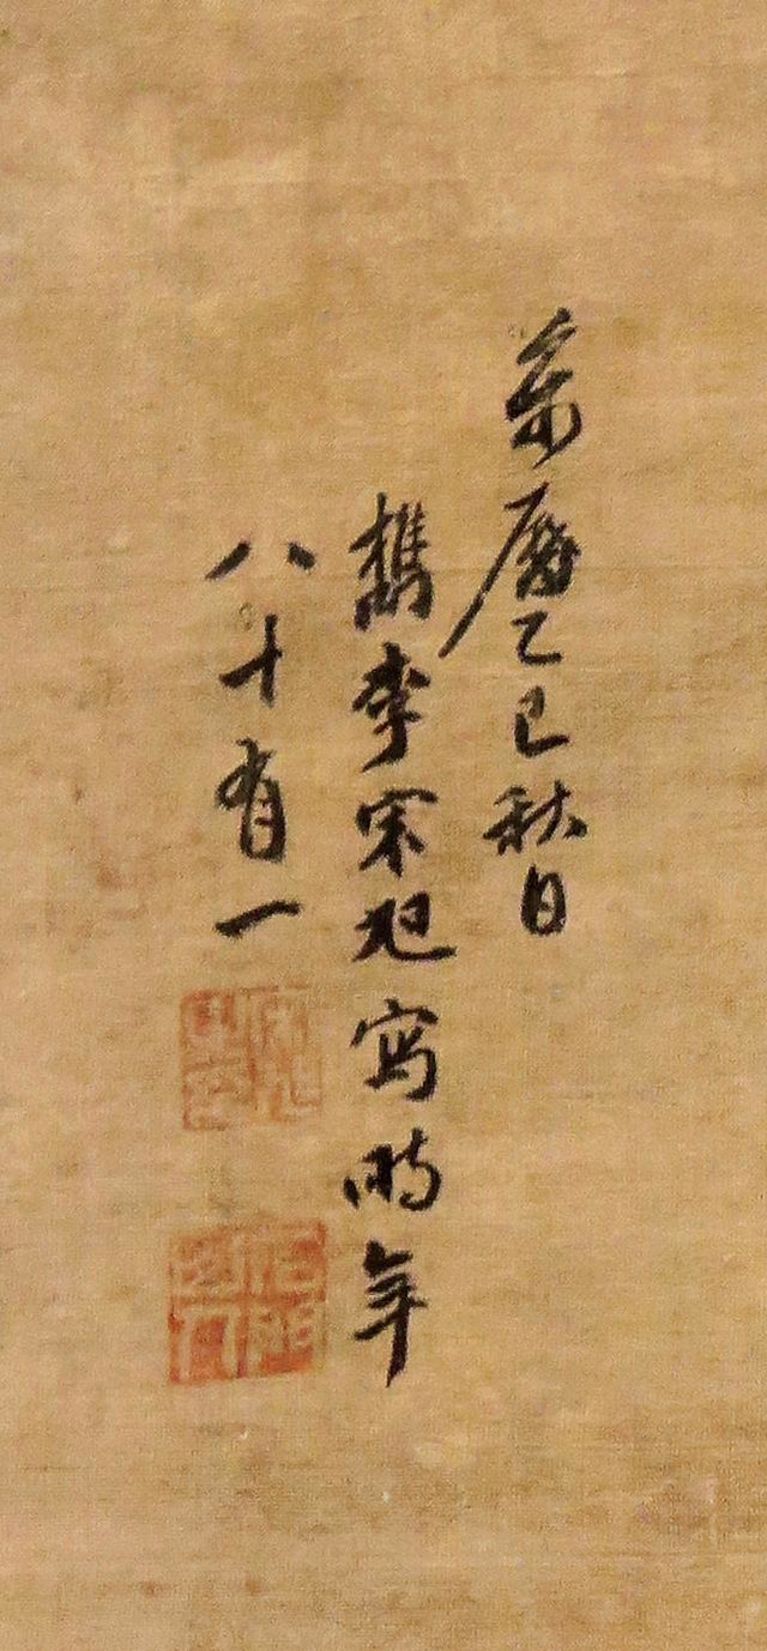 萬曆乙巳秋日
檇李宋旭寫時年
八十有一